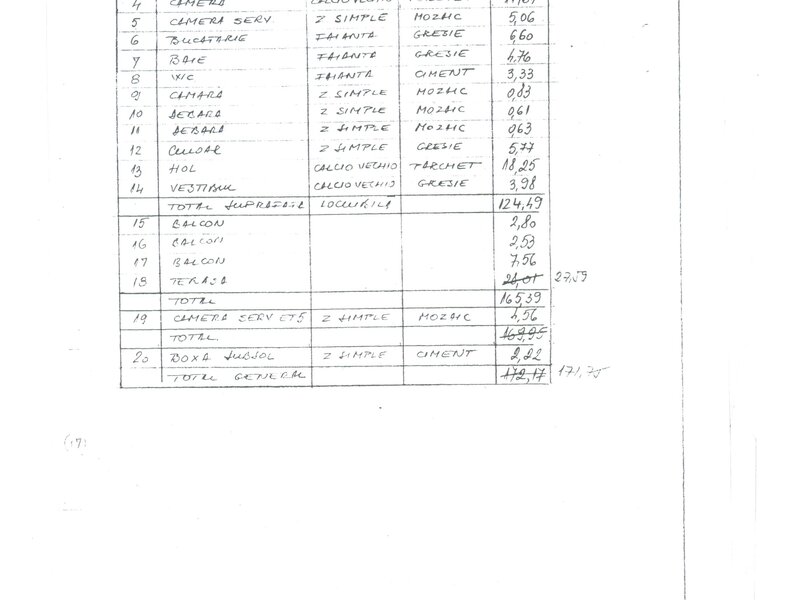 4 CAMERA
5 CAMERA SERV Z SIMPLE MOZAIC 5,06
6 BUCATARIE FAIANTA GRESIE 6,60
7 BAIE FAIANTA GRESIE 4,76
8 WC FAIANTA CIMENT 3,33
9 CAMARA Z SIMPLE MOZAIC 0,83
10 DEBARA Z SIMPLE MOZAIC 0,61
11 DEBARA Z SIMPLE MOZAIC 0,63
12 CULOAR Z SIMPLE GRESIE 5,77
13 HOL CALCIO VECHIO PARCHET 18,25
14 VESTIBUL CALCIO VECHIO GRESIE 3,98
TOTAL SUPRAFATA LOCUIBILA 124,49
15 BALCON 2,80
16 BALCON 2,53
17 BALCON 7,56
18 TERASA 28,01 27,59
TOTAL 165,39
19 CAMERA SERV ET5 Z SIMPLE MOZAIC 4,56
TOTAL. 169,95
20 BOXA SUBSOL Z SIMPLE CIMENT 2,22
TOTAL GENERAL 172,17 171,75
(17)